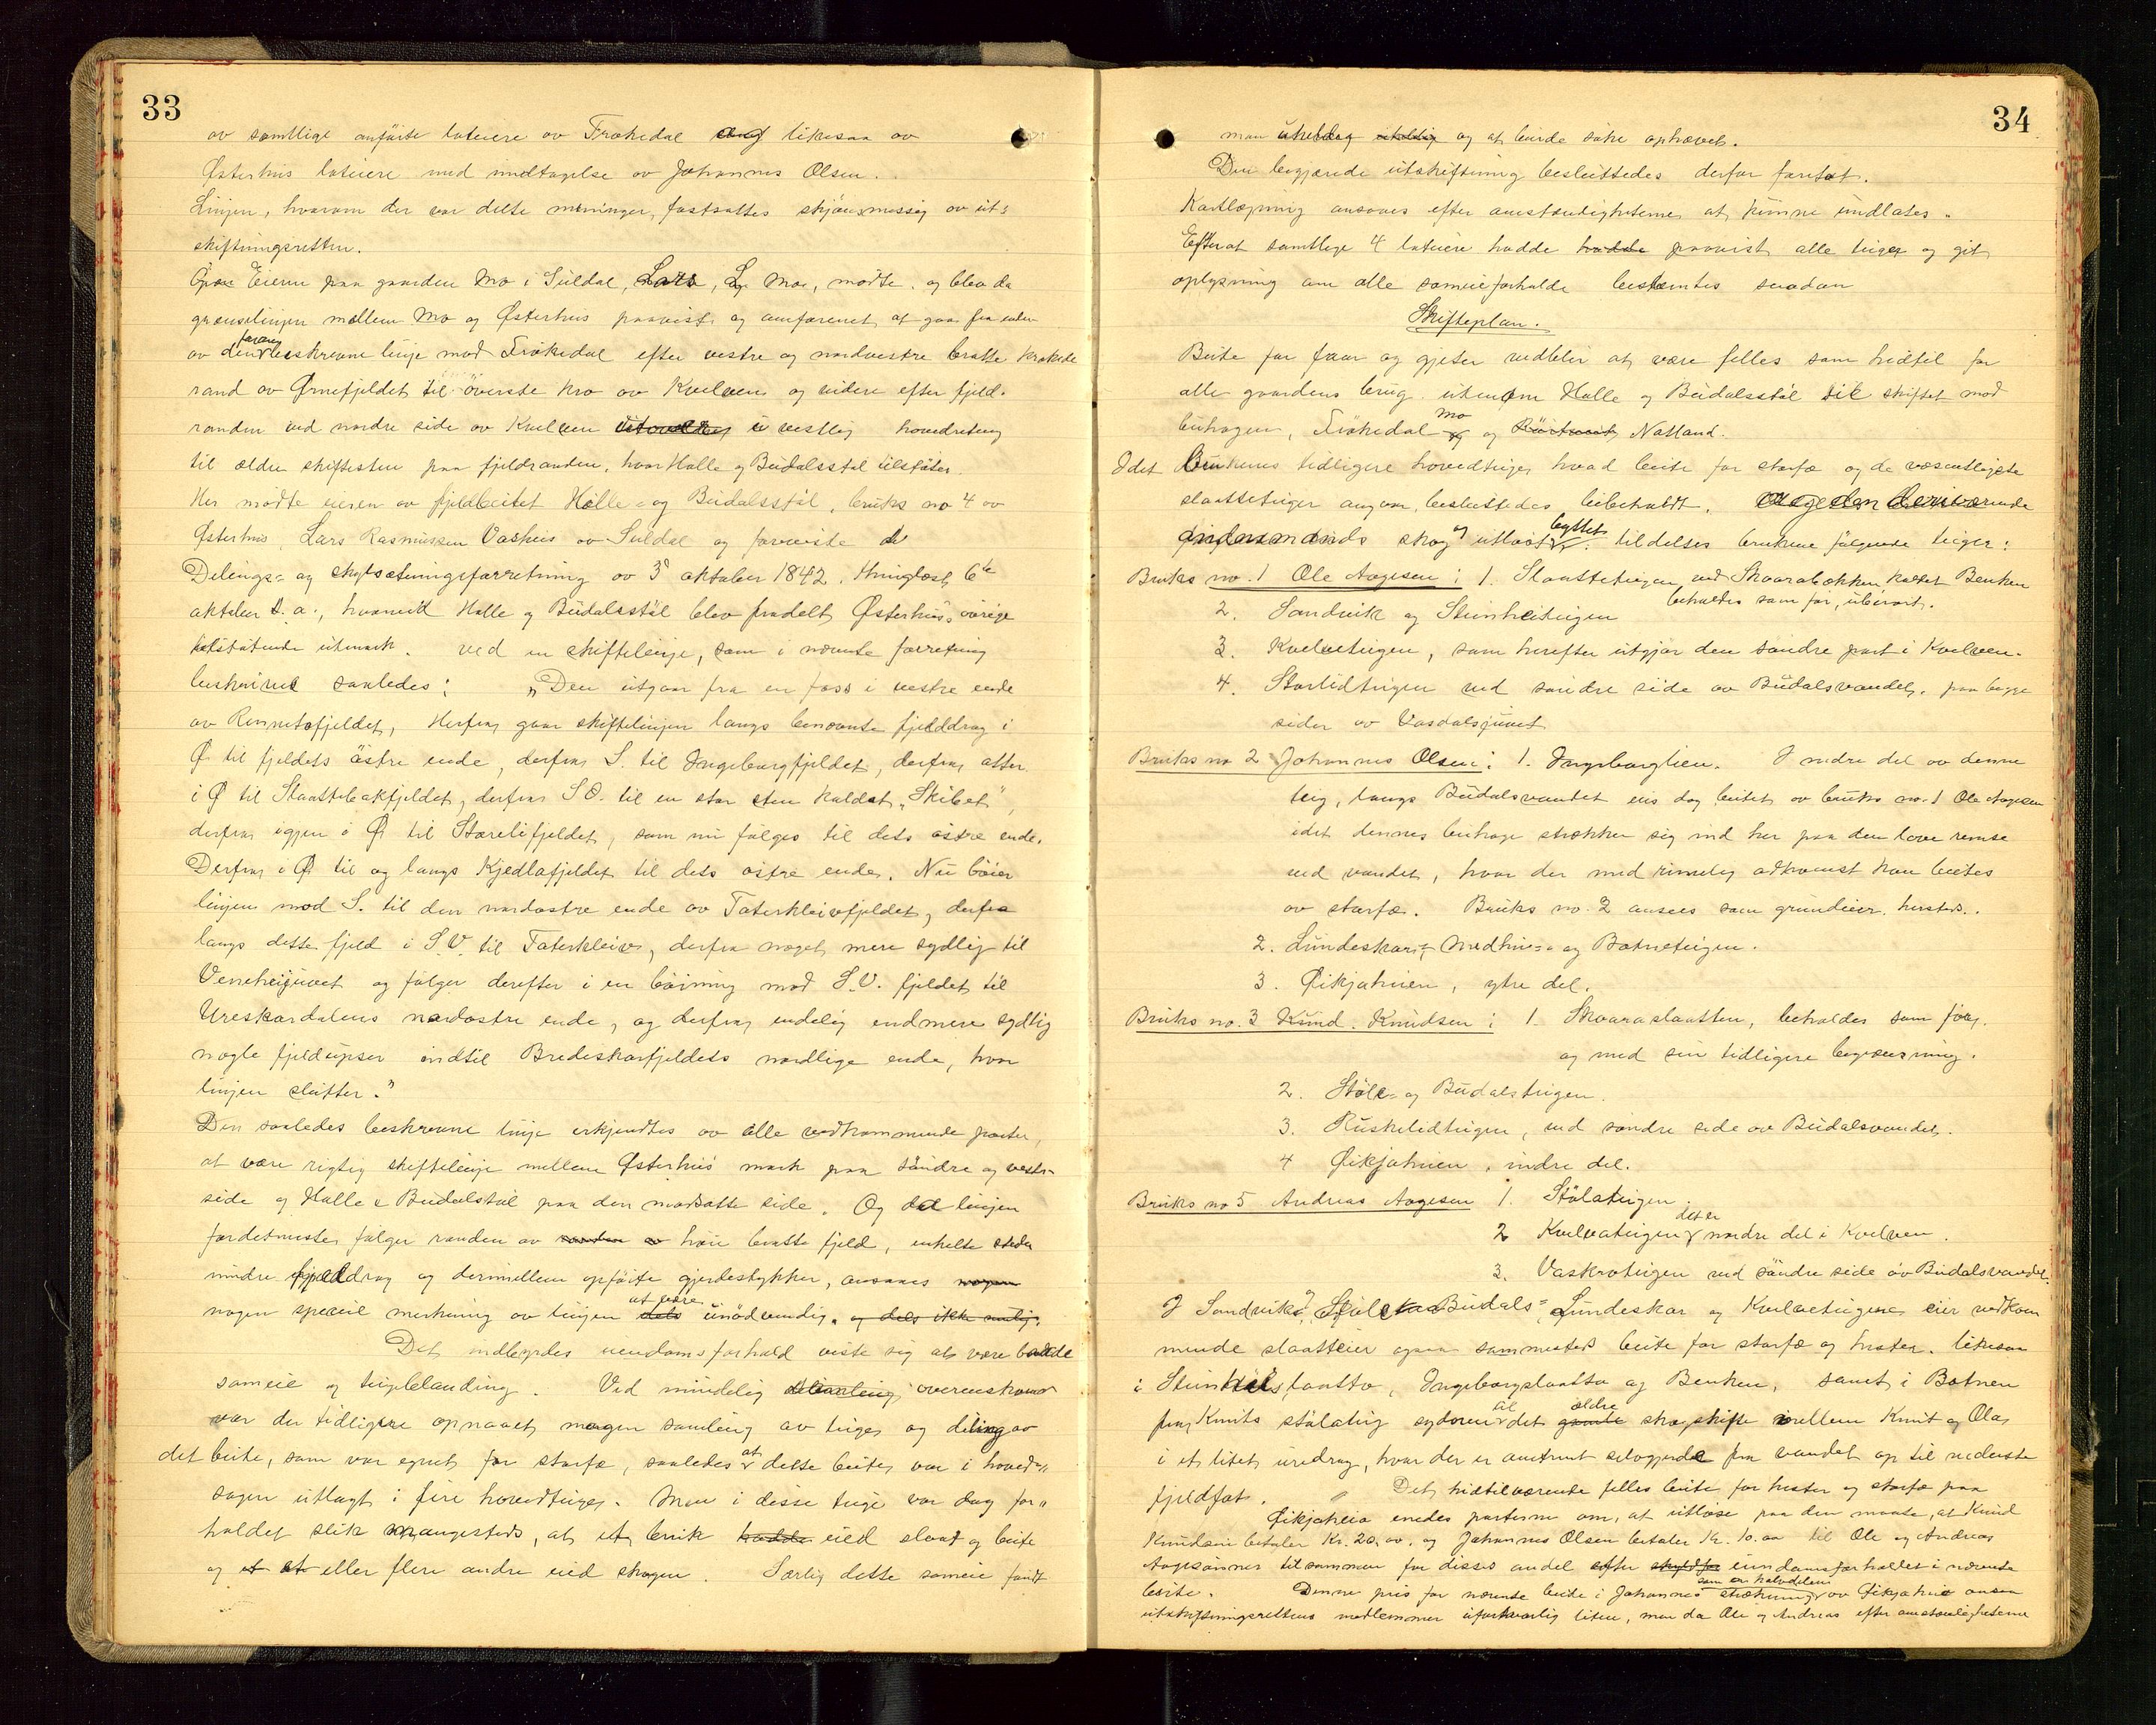 33
av samtlige anførte lateiere av Trøkedal likesaa av
Østerhus lateiere med undtagelse av Johannes Olsen.
Linjen, hvorom der var delte meninger, fastsattes skjønsmessig av ut=
skiftningsretten.
Eieren paa gaarden Mo i Suldal, Lars, L. Mo, mødte og blev da
grænselinjen mellem Mo og Østerhus paavist og omforenet at gaa fra enden
av den foran beskrevne linje mod Trøkedal efter vestre og nordvestre bratte krokede
rand av Ørnefjeldet til øverste kro av Kvelven og videre efter fjeld-
randen ved nordre side av Kvelven i vestlig hovedretning
til ældre skiftesten paa fjeldranden, hvor Halle og Budalsstøl tilstøter.
Her mødte eieren av fjeldbeitet Halle- og Budalsstøl, bruks no 4 av
Østerhus, Lars Rasmussen Vashus av Suldal og foreviste
Delings- og skyldsætningsforretning av 3 oktober 1842, thinglæst 6te
oktober s. a., hvorved Halle og Budalsstøl blev fradelt Østerhus øvrige
tilstøtende utmark, ved en skiftelinje, som i nævnte forretning
beskrives saaledes: "Den utgaar fra en foss i vestre ende
av Rennetofjeldet, Herfra gaar skiftelinjen langs benævnte fjelddrag i
Ø til fjeldets østre ende, derfra S. til Ingeborgfjeldet, derfra atter
i Ø til Slaattebakfjeldet, derfra S.O. til en stor sten kaldet "Skibet",
derfra igjen i Ø til Storelifjeldet, som nu følges til dets østre ende.
Derfra i Ø til og langs Kjedlafjeldet til dets østre ende. Nu bøier
linjen mod S. til den nordøstre ende av Taterkleivfjeldet, derfra
langs dette fjeld i S.V. til Taterkleiv, derfra noget mere sydlig til
Veneheijuvet og følger derefter i en bøining mod S.V. fjeldet til
Ureskardalens nordøstre ende, og derfra endelig endmere sydlig
nogle fjeldupser indtil Bredeskarfjeldets nordlige ende, hvor
linjen slutter."
Den saaledes beskrevne linje erkjendtes av alle vedkommende parter,
at være rigtig skiftelinje mellem Østerhus mark paa søndre og vestre
side og Halle & Budalstøl paa den motsatte side. Og da linjen
fordetmeste følger randen av høie bratte fjeld, enkelte steder
mindre fjelddrag og derimellem opførte gjerdestykker, ansaaes
nogen speciel merkning av linjen at være unødvendig. og dels ikke mulig.
Det indbyrdes eiendomsforhold viste sig at være baade
sameie og teigblanding. Ved mindelig overenskomst
var der tidligere opnaaet nogen samling av teiger og deling av
det beite, som var egnet for storfæ, saaledes at dette beite var i hoved=
sagen utlagt i fire hovedteiger. Men i disse teige var dog for=
holdet slik mangesteds, at et bruk hadde eied slaat og beite
og et eller flere andre eied skogen. Særlig dette sameie fandt
34
man uheldig og at burde søke ophævet.
Den begjærede utskiftning besluttedes derfor foretat.
Kartlægning ansaaes efter omstændigheterne at kunne undlates.
Efterat samtlige 4 lateiere hadde hadde paavist alle teiger og git
oplysning om alle sameieforholde bestemtes saadan
Skifteplan.
Beite for faar og gjeter vedblir at være felles som hidtil for
alle gaardens brug. utenom Halle og Budalsstøl til skiftet mod
buhagen, Trøkedal Mo og Natland.
Idet Brukenes tidligere hovedteiger hvad beite for storfæ og de væsentligste
slaatteteiger angaar, besluttedes bibeholdt.
skog og utlaat byttet tildeltes brukene følgende teiger:
Bruks no. 1 Ole Aagesen: 1. Slaatteteigen ved Skaarabækken kaldet Benken
beholdes som før, uberørt.
2. Sandvik og Steinheiteigen
3. Kvelveteigen, som herefter utgjør den søndre part i Kvelven.
4. Storlidteigen ved søndre side av Budalsvandet, paa begge
sider av Vasdalsjuvet
Bruks no 2 Johannes Olsen: 1. Ingeborglien. I nedre del av denne
teig, langs Budalsvandet eies dog beitet av bruks no. 1 Ole Aagesen
idet dennes buhage strækker sig ind her paa den lave remse
ved vandet, hvor der med rimelig adkomst kan beites
av storfæ. Bruks no. 2 ansees som grundeier hersteds.
2. Lundeskar-, Medhus- og Botneteigen.
3. Øikjaheien, ytre del.
Bruks no. 3 Knud Knudsen: 1. Skaaraslaatten, beholdes som før,
og med sin tidligere begrænsning.
2. Støle- og Budalsteigen.
3. Ruskelidteigen, ved søndre side av Budalsvandet.
4 Øikjaheien, indre del.
Bruks no 5 Andreas Aagesen 1. Stølateigen.
2 Kvelvateigen det er nordre del i Kvelven.
3. Vaskroteigen ved søndre side av Budalsvandet.
I Sandviks, Støle- Budals- Lundeskar og Kvelveteigene eier vedkom
mende slaatteier ogsaa sammesteds beite for storfæ og hester. likesaa
i slaatto, Ingeborgslaatta og Benken, samt i Botnen
fra Knuts stølateig sydover til det ældre skogskifte mellem Knut og Ola
i et litet uredrag, hvor der er omtrent selvgjerde fra vandet op til nederste
fjeldfot. Det hidtilværende felles beite for hester og storfæ paa
Øikjaheia enedes parterne om, at utløse paa den maate, at Knud
Knudsen betaler Kr. 20,00. og Johannes Olsen betaler Kr. 10.00 til Ole og Andreas
Aagesønner tilsammen for disses andel efter eiendomsforholdet i nævnte
beite. Denne pris for nævnte beite i Johannes strækning som er halvdelen av Øikjaheia ansaa
utskiftningsrettens medlemmer uforholdsvis liten, men da Ole og Andreas efter omstændigheterne